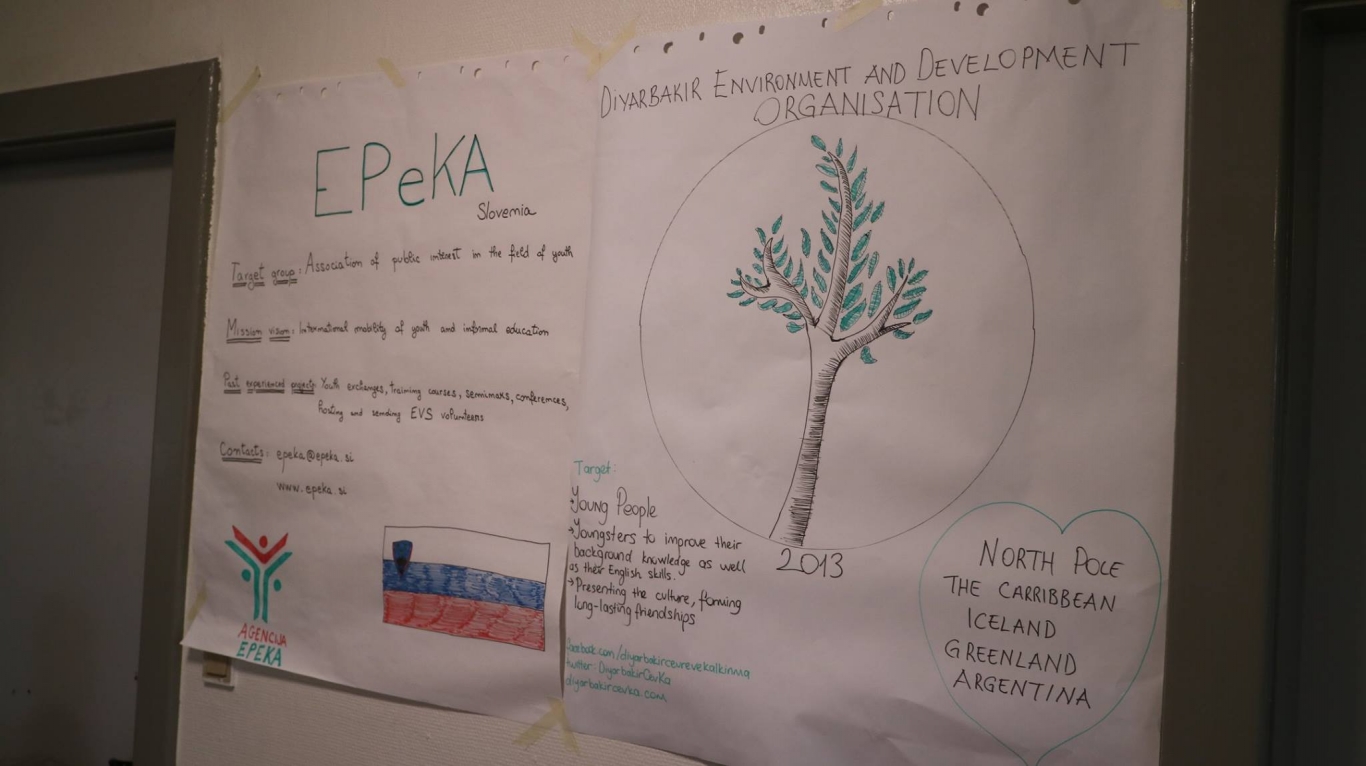 EPeKA
Slovenia
Target group: Association of public interest in the field of youth
Mission vision: International mobility of youth and informal education
Past experienced projects: Youth exchanges, training courses, seminars, conferences,
hosting and sending EVS volunteers
Contacts: epeka@epeka.si
www.epeka.si
AGENCIJA
EPEKA
DIYARBAKIR ENVIRONMENT AND DEVELOPMENT
ORGANISATION
2013
Target:
Young People
→Youngsters to improve their
background knowledge as well
as their English skills.
→Presenting the culture, forming
long-lasting friendships
facebook.com/diyarbakircevrevekalkinma
twitter: DiyarbakirCevKa
diyarbakircevka.com
NORTH POLE
THE CARRIBBEAN
ICELAND
GREENLAND
ARGENTINA